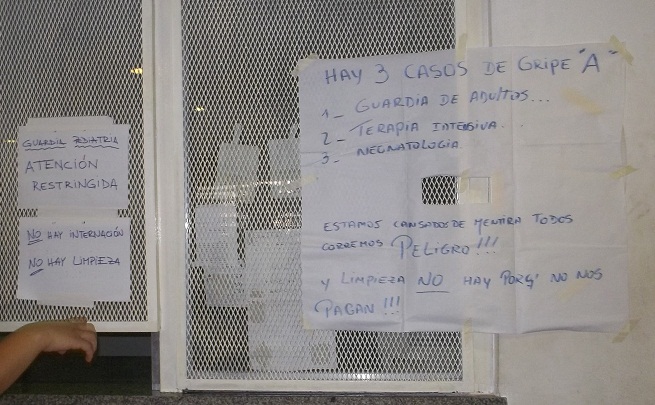 GUARDIA PEDIATRIA
ATENCIÓN
RESTRINGIDA
NO HAY INTERNACIÓN
NO HAY LIMPIEZA
HAY 3 CASOS DE GRIPE "A"
1_ GUARDIA DE ADULTOS...
2_ TERAPIA INTENSIVA..
3_ NEONATOLOGIA
ESTAMOS CANSADOS DE MENTIRA TODOS
CORREMOS PELIGRO!!!
Y LIMPIEZA NO HAY PORQ' NO NOS
PAGAN!!!